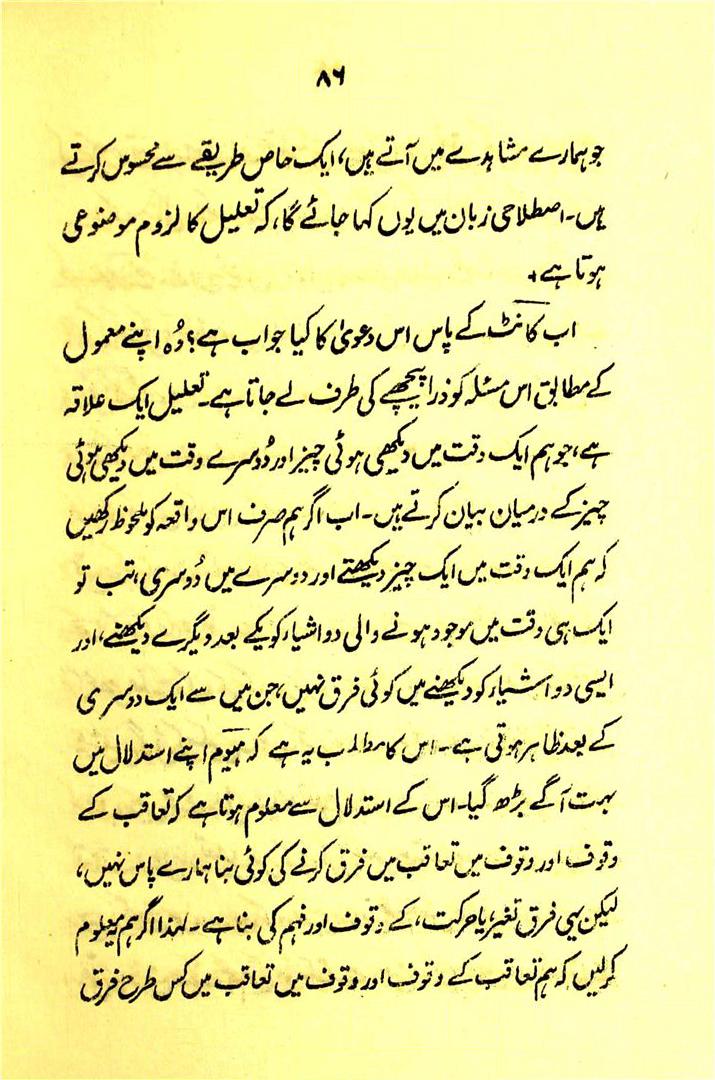 ۸۶
جو ہمارے مشاہدے میں آتے ہیں، ایک خاص طریقے سے محسوس کرتے
ہیں۔ اصطلاحی زبان میں یوں کہا جائے گا، کہ تعلیل کا لزوم موضوعی
ہوتا ہے +
اب کانٹ کے پاس اس دعویٰ کا کیا جواب ہے؟ وُہ اپنے معمول
کے مطابق اس مسٔلہ کو ذرا پیچھے کی طرف لے جاتا ہے۔ تعلیل ایک علاقہ
ہے، جو ہم ایک وقت میں دیکھی ہوئی چیز اور دُوسرے وقت میں دیکھی ہوئی
چیز کے درمیان بیان کرتے ہیں۔ اب اگر ہم صرف اس واقعہ کو ملحوظ رکھیں
کہ ہم ایک وقت میں ایک چیز دیکھتے اور دوسرے میں دُوسری، تب تو
ایک ہی وقت میں موجود ہونے والی دو اشیاء کو یکے بعد دیگرے دیکھنے، اور
ایسی دو اشیاء کو دیکھنے میں کوئی فرق نہیں، جن میں سے ایک دوسری
کے بعد ظاہر ہوتی ہے۔ اس کا مطلب یہ ہے کہ ہیوم اپنے استدلال میں
بہت آگے بڑھ گیا۔ اس کے استدلال سے معلوم ہوتا ہے کہ تعاقب کے
وقوف اور وقوف میں تعاقب میں فرق کرنے کی کوئی بنا ہمارے پاس نہیں،
لیکن یہی فرق تغیر، یا حرکت، کے وقوف اور فہم کی بنا ہے۔ لہذا اگر ہم معلوم
کرلیں کہ ہم تعاقب کے وقوف اور وقوف میں تعاقب میں کس طرح فرق